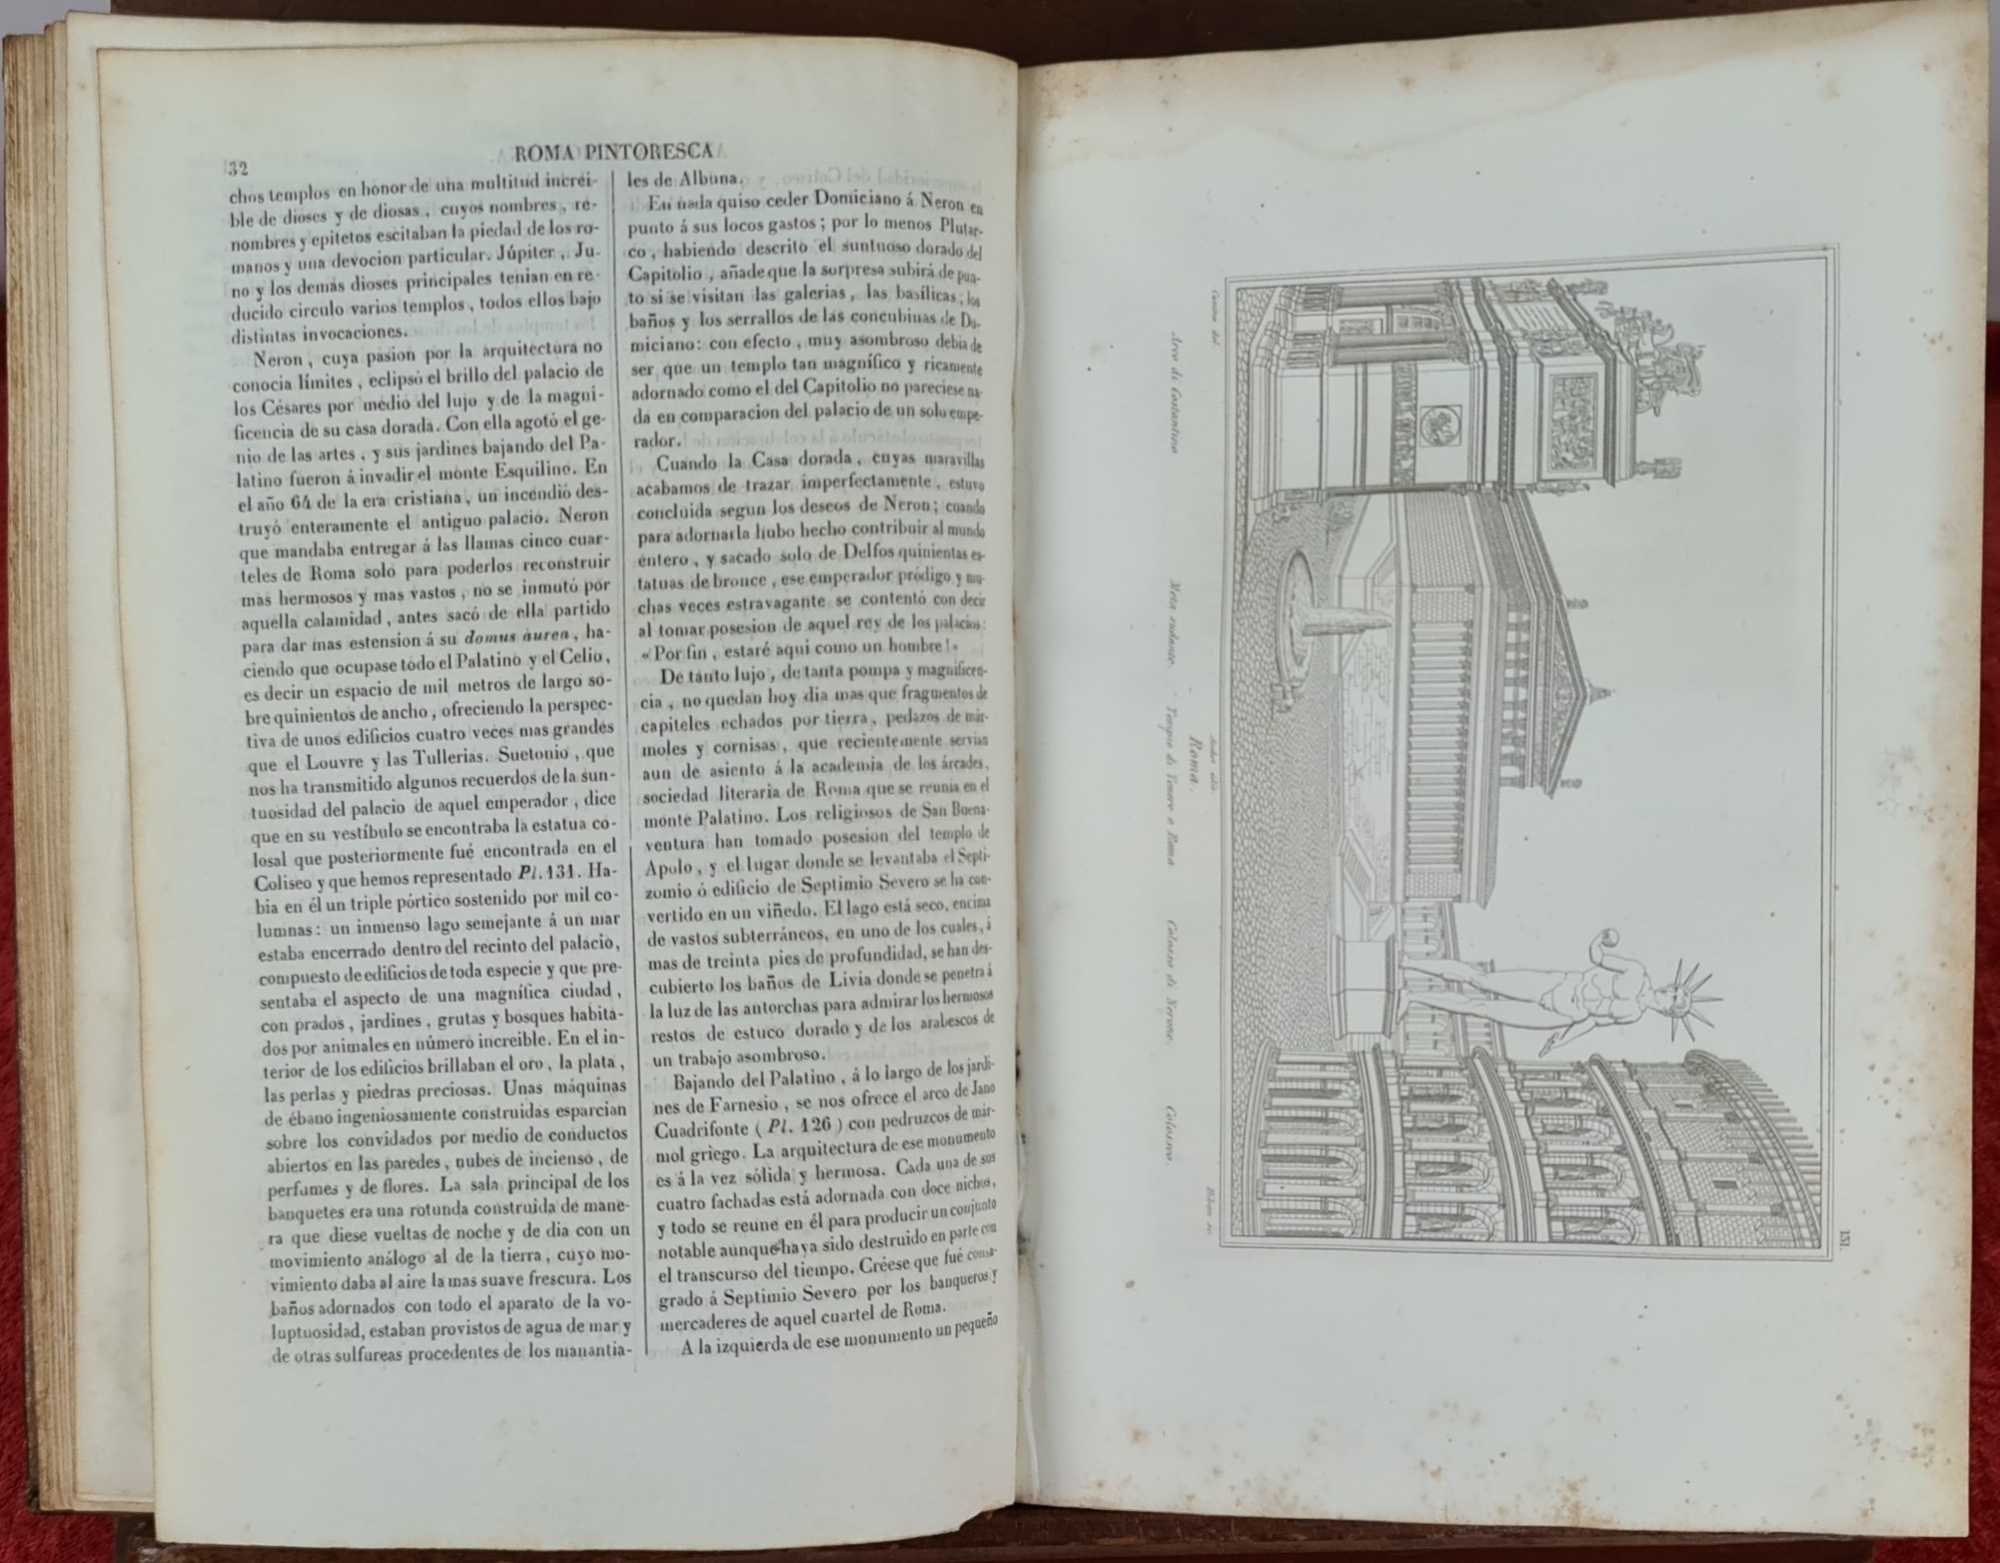 32
ROMA PINTORESCA
chos templos en honor de una multitud increi-
ble de dioses y de diosas, cuyos nombres, re-
nombres y epitetos escitaban la piedad de los ro-
manos y una devocion particular. Júpiter, Ju-
no y los demás dioses principales tenian en re-
ducido circulo varios templos, todos ellos bajo
distintas invocaciones.
Neron, cuya pasion por la arquitectura no
conocia límites, eclipsó el brillo del palacio de
los Césares por medio del lujo y de la magni-
ficencia de su casa dorada. Con ella agotó el ge-
nio de las artes, y sus jardines bajando del Pa-
latino fueron á invadir el monte Esquilino. En
el año 64 de la era cristiana, un incendio des-
truyó enteramente el antiguo palacio. Neron
que mandaba entregar á las llamas cinco cuar-
teles de Roma solo para poderlos reconstruir
mas hermosos y mas vastos, no se inmutó por
aquella calamidad, antes sacó de ella partido
para dar mas estension á su domus aurea, ha-
ciendo que ocupase todo el Palatino y el Celio,
es decir un espacio de mil metros de largo so-
bre quinientos de ancho, ofreciendo la perspec-
tiva de unos edificios cuatro veces mas grandes
que el Louvre y las Tullerias. Suetonio, que
nos ha transmitido algunos recuerdos de la sun-
tuosidad del palacio de aquel emperador, dice
que en su vestíbulo se encontraba la estatua co-
losal que posteriormente fué encontrada en el
Coliseo y que hemos representado Pl. 131. Ha-
bia en él un triple pórtico sostenido por mil co-
lumnas: un inmenso lago semejante á un mar
estaba encerrado dentro del recinto del palacio,
compuesto de edificios de toda especie y que pre-
sentaba el aspecto de una magnífica ciudad,
con prados, jardines, grutas y bosques habita-
dos por animales en número increible. En el in-
terior de los edificios brillaban el oro, la plata,
las perlas y piedras preciosas. Unas máquinas
de ébano ingeniosamente construidas esparcian
sobre los convidados por medio de conductos
abiertos en las paredes, nubes de incienso, de
perfumes y de flores. La sala principal de los
banquetes era una rotunda construida de mane-
ra que diese vueltas de noche y de dia con un
movimiento análogo al de la tierra, cuyo mo-
vimiento daba al aire la mas suave frescura. Los
baños adornados con todo el aparato de la vo-
luptuosidad, estaban provistos de agua de mar y
de otras sulfureas procedentes de los manantia-
les de Albuna.
En nada quiso ceder Domiciano á Neron en
punto á sus locos gastos; por lo menos Plutar-
co, habiendo descrito el suntuoso dorado del
Capitolio, añade que la sorpresa subirá de pun-
to si se visitan las galerias, las basílicas, los
baños y los serrallos de las concubinas de Do-
miciano: con efecto, muy asombroso debia de
ser que un templo tan magnífico y ricamente
adornado como el del Capitolio no pareciese na-
da en comparacion del palacio de un solo empe-
rador.
Cuando la Casa dorada, cuyas maravillas
acabamos de trazar imperfectamente, estuvo
concluida segun los deseos de Neron; cuando
para adornarla hubo hecho contribuir al mundo
entero, y sacado solo de Delfos quinientas es-
tatuas de bronce, ese emperador pródigo y mu-
chas veces estravagante se contentó con decir
al tomar posesion de aquel rey de los palacios:
«Por fin, estaré aqui como un hombre!»
De tanto lujo, de tanta pompa y magnificen-
cia, no quedan hoy dia mas que fragmentos de
capiteles echados por tierra, pedazos de már-
moles y cornisas, que recientemente servian
aun de asiento á la academia de los árcades,
sociedad literaria de Roma que se reunia en el
monte Palatino. Los religiosos de San Buena-
ventura han tomado posesion del templo de
Apolo, y el lugar donde se levantaba el Septi-
zomio ó edificio de Septimio Severo se ha con-
vertido en un viñedo. El lago está seco, encima
de vastos subterráneos, en uno de los cuales, á
mas de treinta pies de profundidad, se han des-
cubierto los baños de Livia donde se penetra á
la luz de las antorchas para admirar los hermosos
restos de estuco dorado y de los arabescos de
un trabajo asombroso.
Bajando del Palatino, á lo largo de los jardi-
nes de Farnesio, se nos ofrece el arco de Jano
Cuadrifonte (Pl. 126) con pedruzcos de már-
mol griego. La arquitectura de ese monumento
es á la vez sólida y hermosa. Cada una de sus
cuatro fachadas está adornada con doce nichos,
y todo se reune en él para producir un conjunto
notable aunque haya sido destruido en parte con
el transcurso del tiempo. Créese que fué consa-
grado á Septimio Severo por los banqueros y
mercaderes de aquel cuartel de Roma.
A la izquierda de ese monumento un pequeño
131.
Arco di Costantino Meta sudante. Tempio di Venere e Roma Colosso di Nerone. Colosseo.
Roma.